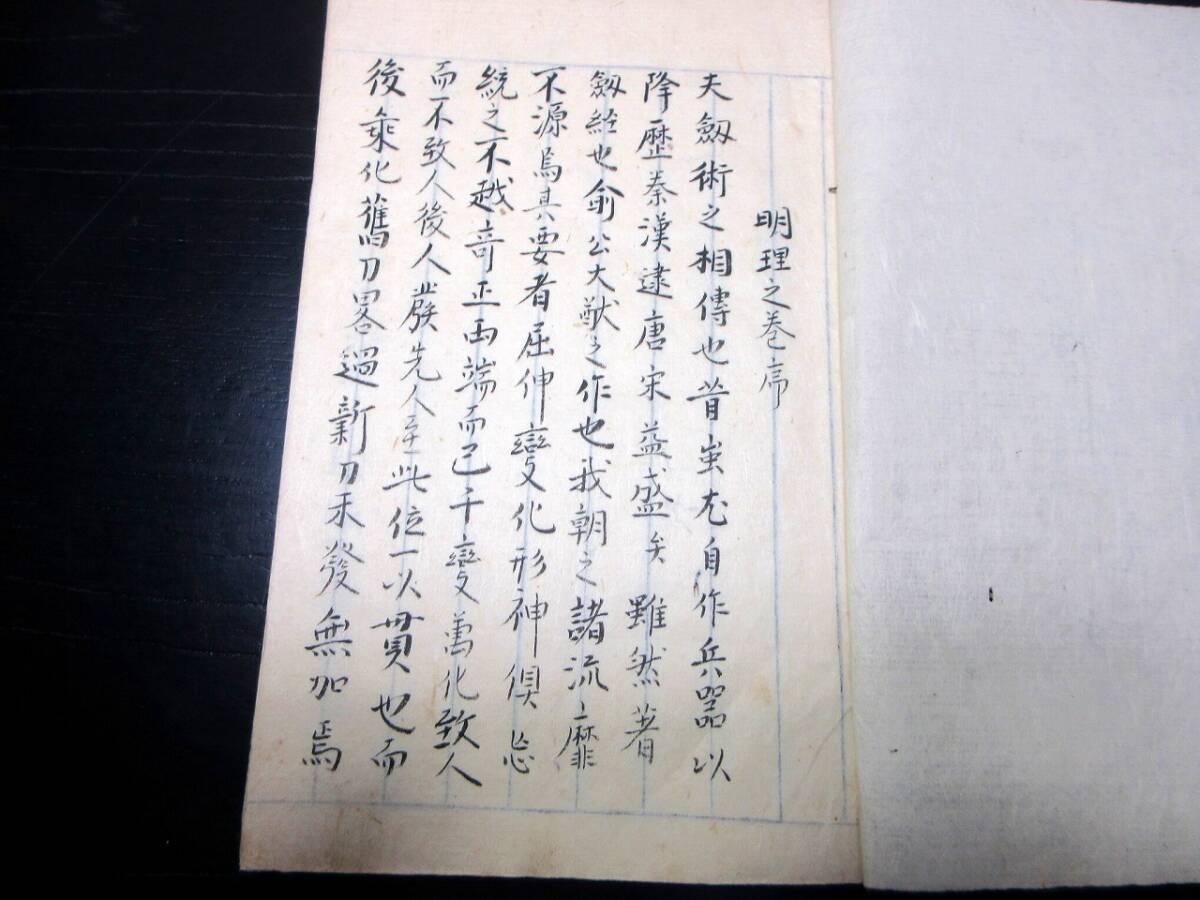 明理之巻序
夫劔術之相傳也昔蚩尤自作兵器以
降歷秦漢逮唐宋益盛矣雖然著
劔経也俞公大猷之作也我朝之諸流靡
不源焉其要者屈伸變化形神俱忘
統之不越奇正両端而已千變萬化致人
而不致人後人發先人至此位一以貫也而
後乗化舊刀畧過新刀未發無加焉